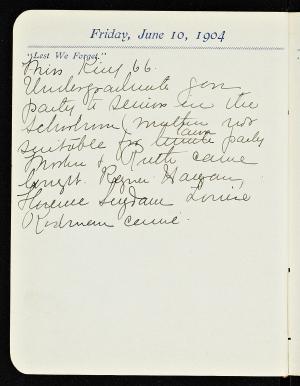 Friday, June 10, 1904
"Lest We Forget."
Miss King 66.
Undergraduate gave
party to seniors in the
schoolroom (weather not
lawn
suitable for party
Mother & Ruth came
Florence Suydam Louise
Rodman came.